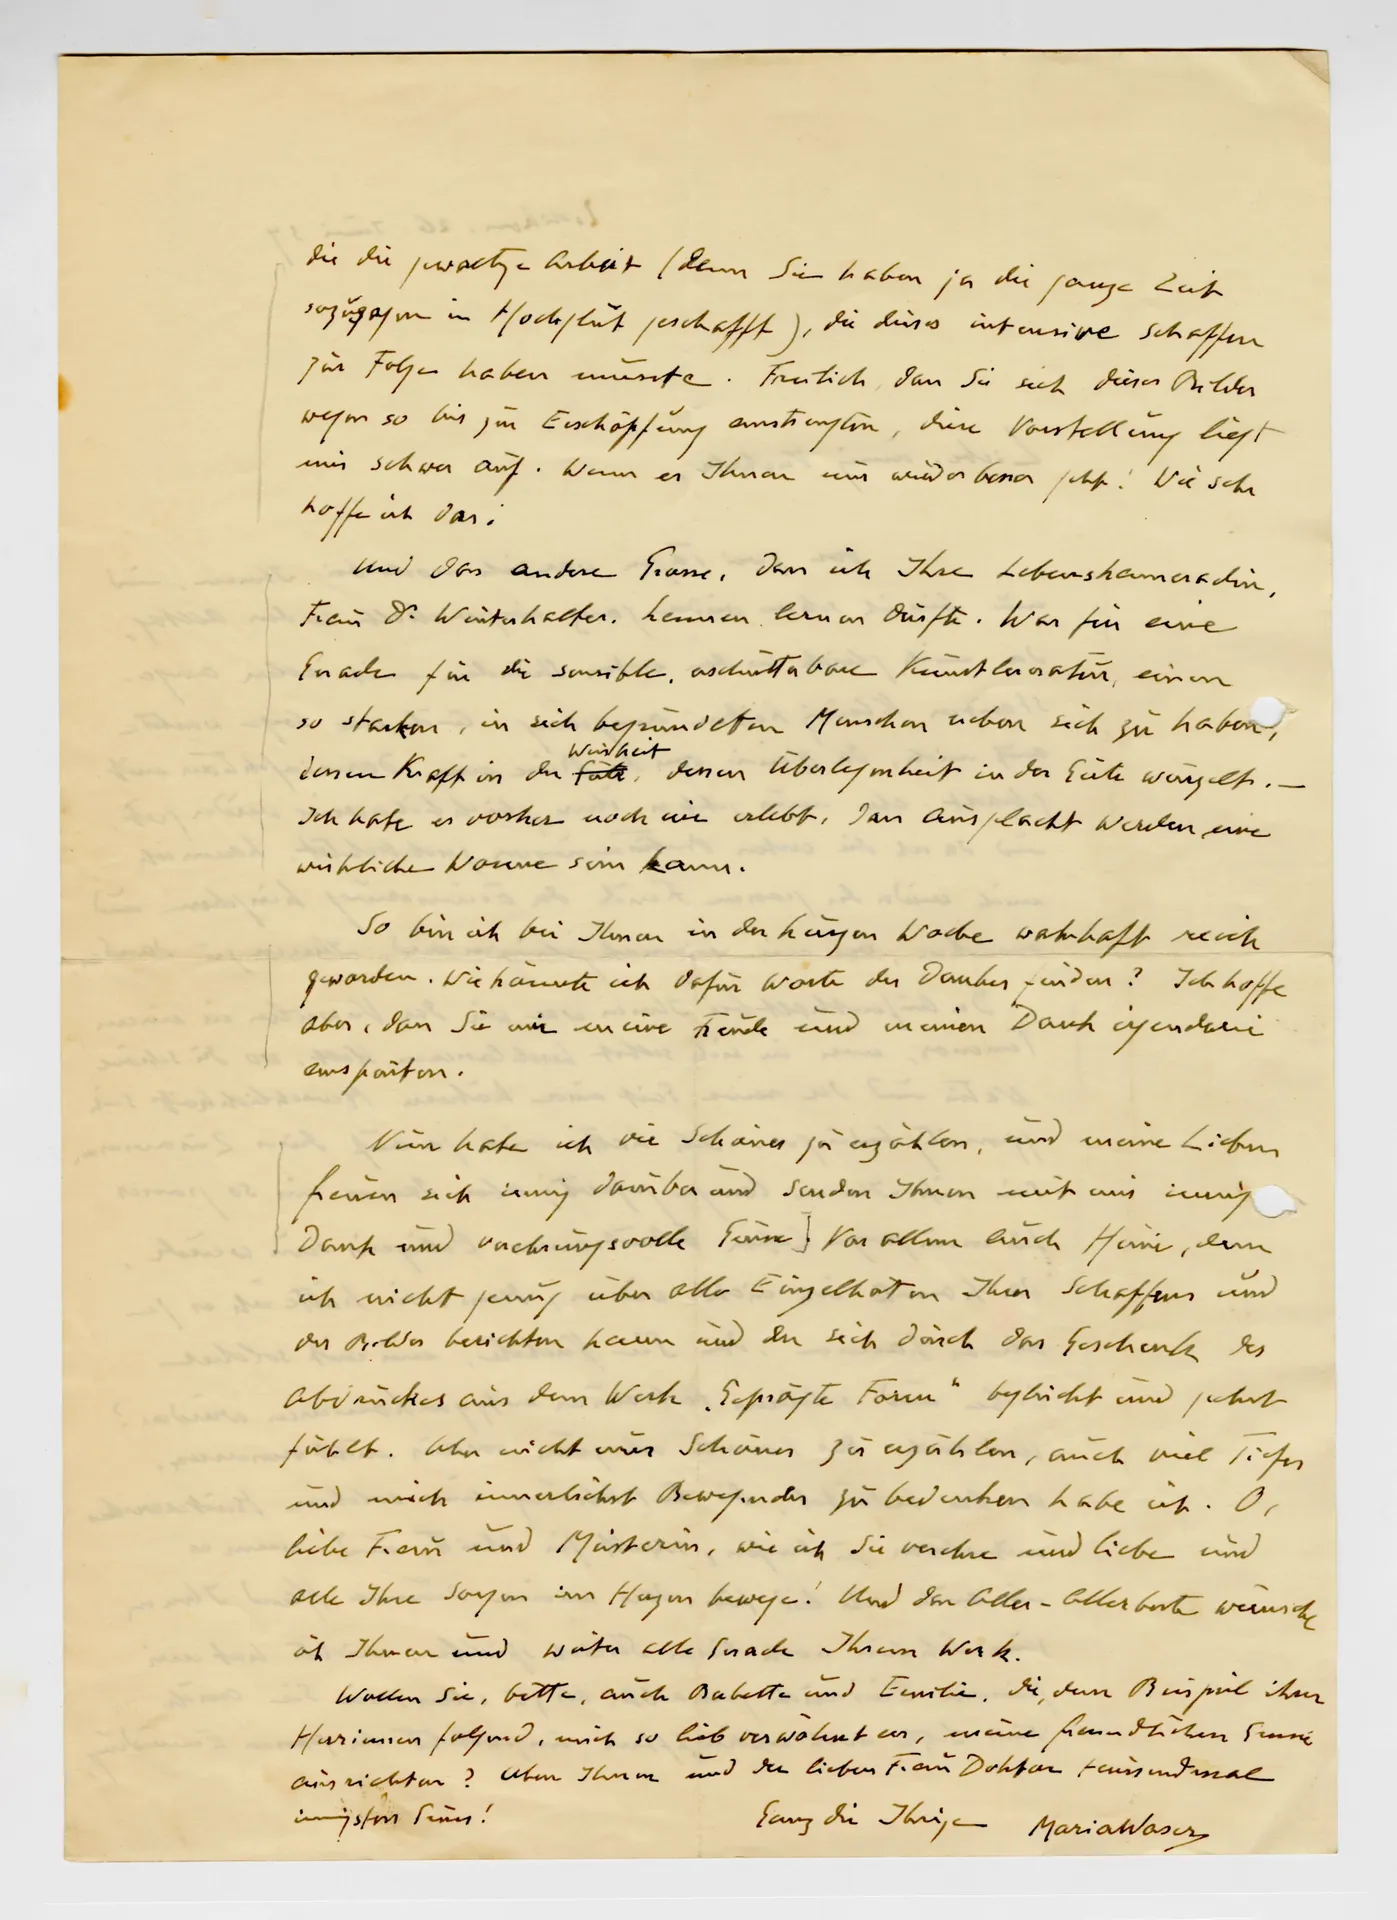 die die gewaltige Arbeit (denn Sie haben ja die ganze Zeit
sozusagen in Hochglut geschafft), die dieses intensive Schaffen
zur Folge haben musste. Freilich, dass Sie sich dieser Bilder
wegen so bis zur Erschöpfung anstrengten, diese Vorstellung liegt
mir schwer auf. Wenn es Ihnen nur wieder besser geht! Wie sehr
hoffe ich das!
Und das andere Grosse, dass ich Ihre Lebenskameradin,
Frau Dr Winterhalter, kennen lernen durfte. Was für eine
Gnade für die sensible, erschütterbare Künstlernatur, einen
so starken, in sich begründeten Menschen neben sich zu haben,
dessen Kraft in der Weisheit, dessen Überlegenheit in der Güte wurzelt. —
Ich habe es vorher noch nie erlebt, dass ausgelacht werden eine
wirkliche Wonne sein kann.
So bin ich bei Ihnen in der kurzen Woche wahrhaft reich
geworden. Wie könnte ich dafür Worte des Dankes finden? Ich hoffe
aber, dass Sie mir meine Freude und meinen Dank irgendwie
anspürten.
Nun habe ich viel Schönes zu erzählen, und meine Lieben
freuen sich innig darüber und senden Ihnen mit mir innig
Dank und verehrungsvolle Grüsse] Vor allem auch Heini, dem
ich nicht genug über alle Einzelheiten Ihres Schaffens und
der Bilder berichten kann und der sich durch das Geschenk des
Abdruckes aus dem Werk „Geprägte Form“ beglückt und geehrt
fühlt. Aber nicht nur Schönes zu erzählen, auch viel Tiefes
und mich innerlichst Bewegendes zu bedenken habe ich. O,
liebe Frau und Meisterin, wie ich Sie verehre und liebe und
alle Ihre Sorgen im Herzen bewege! Und das Aller-Allerbeste wünsche
ich Ihnen und weiter alle Gnade Ihrem Werk.
Wollen Sie, bitte, auch Babette und Emilie, die, dem Beispiel ihrer
Herrinnen folgend, mich so lieb verwöhnten, meine freundlichen Grüsse
ausrichten? Aber Ihnen und der lieben Frau Doktor tausendmal
innigsten Gruss!
Ganz die Ihrige Maria Waser